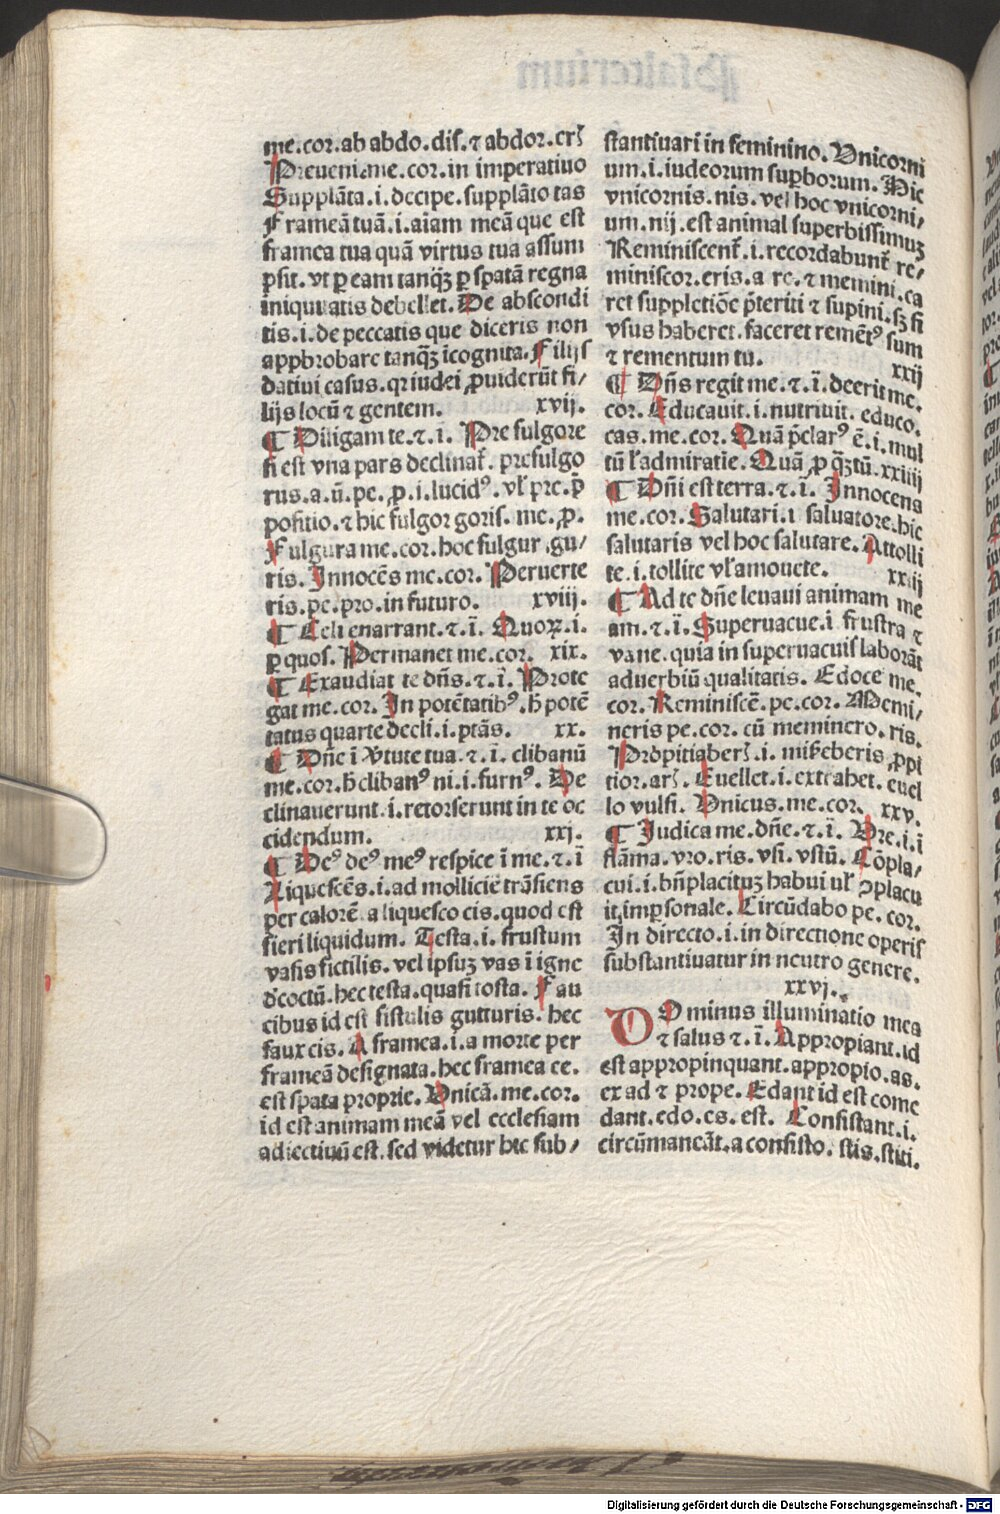 me.cor.ab abdo.dis.⁊ abdor.erꝭ
Preueni.me.cor.in imperatiuo
Supplāta.i.decipe.supplāto tas
Frameā tuā.i.aīam meā que est
framea tua quā virtus tua assum
psit.vt ꝑ eam tanqꝫ ꝑ spatā regna
iniquitatis debellet. De abscondi
tis.i.de peccatis que diceris non
appbrobare tanqꝫ īcognita. Filijs
datiui casus.qꝛ iudei ꝓuiderūt fi/
lijs locū ⁊ gentem. xvij.
¶ Diligam te.⁊.ī. Pre fulgore
si est vna pars declinat̄. prefulgo
rus.a.ū.pe.ꝓ.i.lucidꝰ.vl̓ pre.p̄
positio.⁊ hic fulgor goris. me.ꝓ.
Fulgura me.cor.hoc fulgur.gu/
ris. Innocēs me.cor. Peruerte
ris.pe.pro.in futuro. xviij.
¶ Celi enarrant.⁊.ī. Quoꝝ.i.
ꝑ quos. Permanet me.cor. xix.
¶ Exaudiat te dn̄s.⁊.ī. Prote
gat me.cor. In potētatibꝰ.h̄ potē
tatus quarte decli.i.ptās. xx.
¶ Dn̄e ī v̓tute tua.⁊.ī. clibanū
me.cor.h̄ clibanꝰ ni.i.furnꝰ. De
clinauerunt.i.retorserunt in te oc
cidendum. xxj.
¶ Deꝰ deꝰ meꝰ respice ī me.⁊.ī
Liquescēs.i.ad molliciē trāsiens
per calorē a liquesco cis.quod est
fieri liquidum. Testa.i.frustum
vasis fictilis.vel ipsuꝫ vas ī igne
d̓coctū.hec testa.quasi tosta. Fau
cibus id est fistulis gutturis. hec
faux cis. A framea.i.a morte per
frameā designata.hec framea ee.
est spata proprie. Vnicā.me.cor.
id est animam meā vel ecclesiam
adiectiuū est.sed videtur hic sub/
stantiuari in feminino. Vnicorni
um.i.iudeorum suꝑborum. Hic
vnicornis.nis.vel hoc vnicorni/
um.nij.est animal superbissimuꝫ
Reminiscent̄.i.recordabunt̄ re/
miniscor.eris.a re.⁊ memini.ca
ret suppletiōe p̄teriti ⁊ supini.sꝫ si
vsus haberet.faceret remētꝰ sum
⁊ rementum tu. xxij
¶ Dn̄s regit me.⁊.ī.deerit me.
cor. Educauit.i.nutriuit. educo.
cas.me.cor. Quā p̄clarꝰ ē.i.mul
tū l̓ admiratie. Quā ꝓ qꝫtū. xxiiij
¶ Dn̄i est terra.⁊.ī. Innocens
me.cor. Salutari.i saluatore.hic
salutaris vel hoc salutare. Attolli
te.i.tollite vl̓ amouete. xxiij
¶ Ad te dn̄e leuaui animam me
am.⁊.ī. Superuacue.i frustra ⁊
vane.quia in superuacuis laborāt
aduerbiū qualitatis. Edoce me.
cor. Reminiscē.pe.cor. Memi/
neris pe.cor. cū meminero.ris.
Propitiaberꝭ.i.mis̓eberis ꝓpi
tior.arꝭ. Euellet.i.extrahet.euel
lo vulsi. Vnicus.me.cor. xxv.
¶ Judica me.dn̄e.⁊.ī. Vre.i.ī
flāma.vro.ris.vsi.vstū. Cōpla/
cui.i.bn̄placituꝫ habui vl̓ ꝯplacu
it īmꝑsonale. Circūdabo pe.cor.
In directo.i.in directione operis
substantiuatur in neutro genere.
xxvj.
Dominus illuminatio mea
⁊ salus ⁊.ī. Appropiant.id
est appropinquant.appropio.as.
ex ad ⁊ prope. Edant id est come
dant.edo.es.est. Consistant.i.
circūmaneāt.a consisto.stis.stiti.
Digitalisierung gefördert durch die Deutsche Forschungsgemeinschaft - DFG